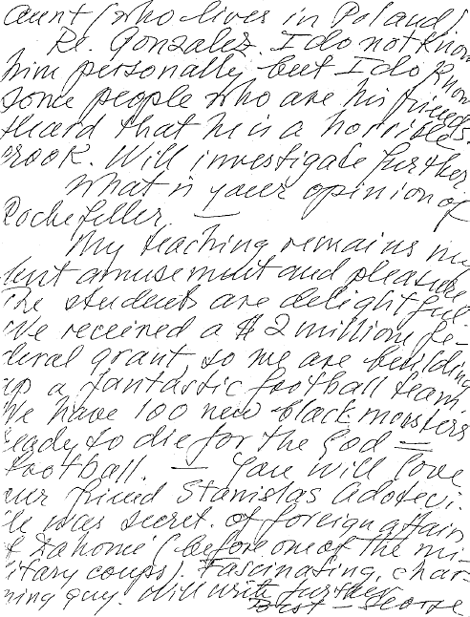 aunt (who lives in Poland)!
Re. Gonzalez. I do not know
him personally, but I do know
some people who are his friends.
Heard that he is a horrible
crook. Will investigate further.
What is your opinion of
Rockefeller. —
My teaching remains my
best amusement and pleasure
The students are delightful.
We received a $ 2 million fe-
deral grant so we are building
up a fantastic football team.
We have 100 new black monsters
ready to die for the God =
football. — You will love
our friend Stanislas Adotevi.
He was secret. of foreign affair
of Dahome (before one of the mi-
litary coups). Fascinating, char-
ming guy. Will write further
Best — George